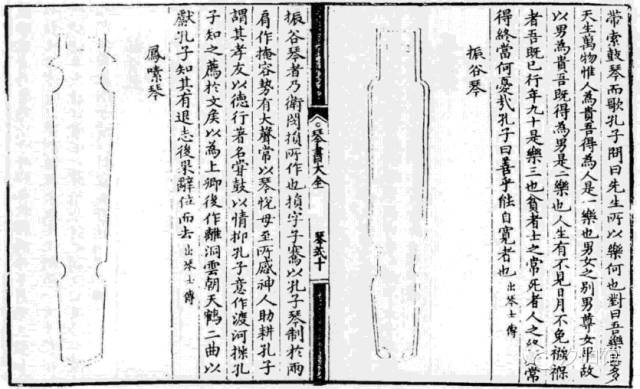 帶索鼓琴而歌孔子問曰先生所以樂何也對曰吾樂甚多
天生萬物惟人為貴吾得為人是一樂也男女之別男尊女卑故
以男為貴吾既得為男是二樂也人生有不見日月不免襁褓
者吾既已行年九十是樂三也貧者士之常死者人之終常
得終當何憂哉孔子曰善乎能自寬者也出琴士傳
振谷琴
琴書大全
琴式十
振谷琴者乃衛閔損所作也損字子騫以孔子琴制於兩
肩作掩容勢有大聲常以琴悅母至所感神人助耕孔子
謂其孝友以德行著名嘗鼓以情抑孔子意作渡河操孔
子知之薦於文侯以為上卿後作離洞雲朝天鶴二曲以
獻孔子知其有退志後果辭位而去出琴士傳
鳳嗉琴